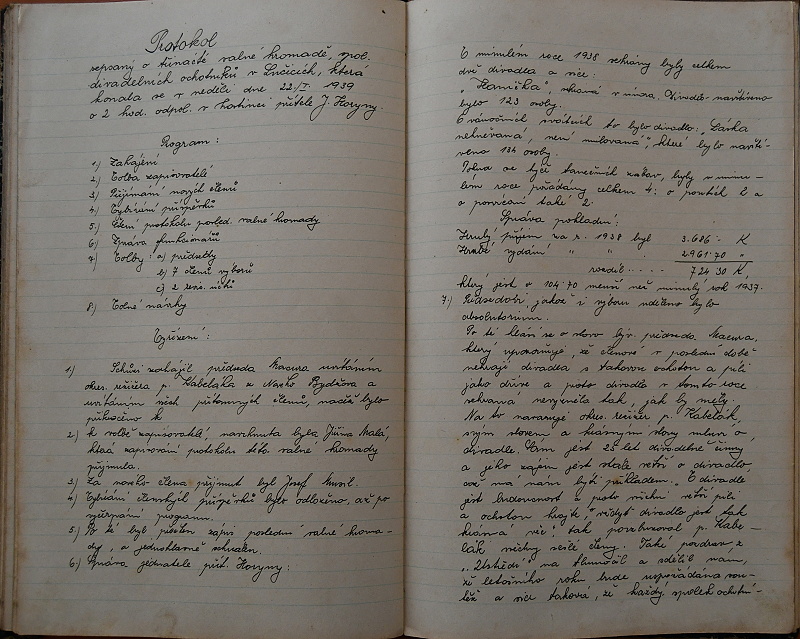 Protokol
sepsaný o třinácté valné hromadě, spol.
divadelních ochotníků v Lučicích, která
konala se v neděli dne 22./I. 1939
o 2 hod. odpol. v hostinci přítele J. Horyny.
Program:
1.) Zahájení
2.) Volba zapisovatelé
3.) Přijímání nových členů
4.) Vybírání příspěvků
5.) Čtení protokolu posled. valné hromady
6.) Zpráva funkcionářů
7.) Volby: a) předsedy
b) 7 členů výboru
c) 2 revis. účtů
8.) Volné návrhy
Vyřízení:
1.) Schůzi zahájil předseda Macura uvítáním
okres. režiséra p. Kabeláka z Nového Bydžova a
uvítáním všech přítomných členů, načež bylo
přikročeno k
2.) k volbě zapisovatelé, navrhnuta byla Jiřina Malá,
ktaá zapisování protokolu této valné hromady
přijmula.
3.) Za nového člena přijmut byl Josef Musil.
4.) Vybírání členských příspěvků bylo odloženo, až po
vyčerpání programu.
5.) Po té byl přečten zápis poslední valné hroma-
dy, a jednohlasně schválen.
6.) Zpráva jednatele přít. Horyny:
V minulém roce 1938 sehrány byly celkem
dvě divadla a sice:
"Hanička", sehraná v únoru. Divadlo navštíveno
bylo 123 osoby.
O vánočních svátcích to bylo divadlo: "Láska
nehněvaná, není milovaná", které bylo navští-
veno 134 osoby.
Pokud se týče tanečních zábav, byly v minu-
lém roce pořádány celkem 4: o poutích 2 a
o posvícení také 2.
Správa pokladní:
Hrubý příjem za r. 1938 byl 3.686 - K
Hrubé vydání " " " 2961·70 "
rozdíl..... 724 30 K,
který jest o 104·70 menší než minulý rok 1937.
7.) Předsedovi, jakož i výboru uděleno bylo
absolutorium.
Po té hlásí se o slovo býv. předseda Macura,
který upozorňuje, že členové v poslední době
nehrají divadla s takovou ochotou a pílí
jako dříve a proto divadla v tomto roce
sehraná nevyzněla tak, jak by měly.
Na to navazuje okres. režisér p. Kabelák,
svým slovem a krásnými slovy mluví o
divadle. Sám jest 25 let divadelně činný
a jeho zájem jest stále větší o divadlo,
což má nám býti příkladem. "V divadle
jest budoucnost a proto všichni větší pílí
a ochotou hrajte, "vždyť divadlo jest tak
krásná věc", tak povzbuzoval p. Kabe-
lák všechny naše členy. Také pozdrav z
"Ústředí" nám tlumočil a sdělil nám,
že letošního roku bude uspořádána sou-
těž a sice taková, že každý spolek ochotni-